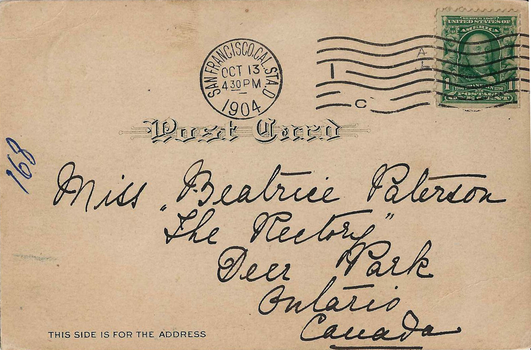 SAN FRANCISCO, CAL. STA. D
OCT 13
430 PM
1904
1
C
Post Card
168
Miss Beatrice Paterson
"The Rectory"
Deer Park
Ontario
Canada
THIS SIDE IS FOR THE ADDRESS